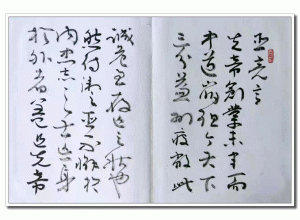 臣亮言
先帝創業未半而
中道崩殂今天下
三分益州疲敝此
誠危急存亡之秋也
然侍衛之臣不懈於
內忠志之士忘身
於外者蓋追先帝